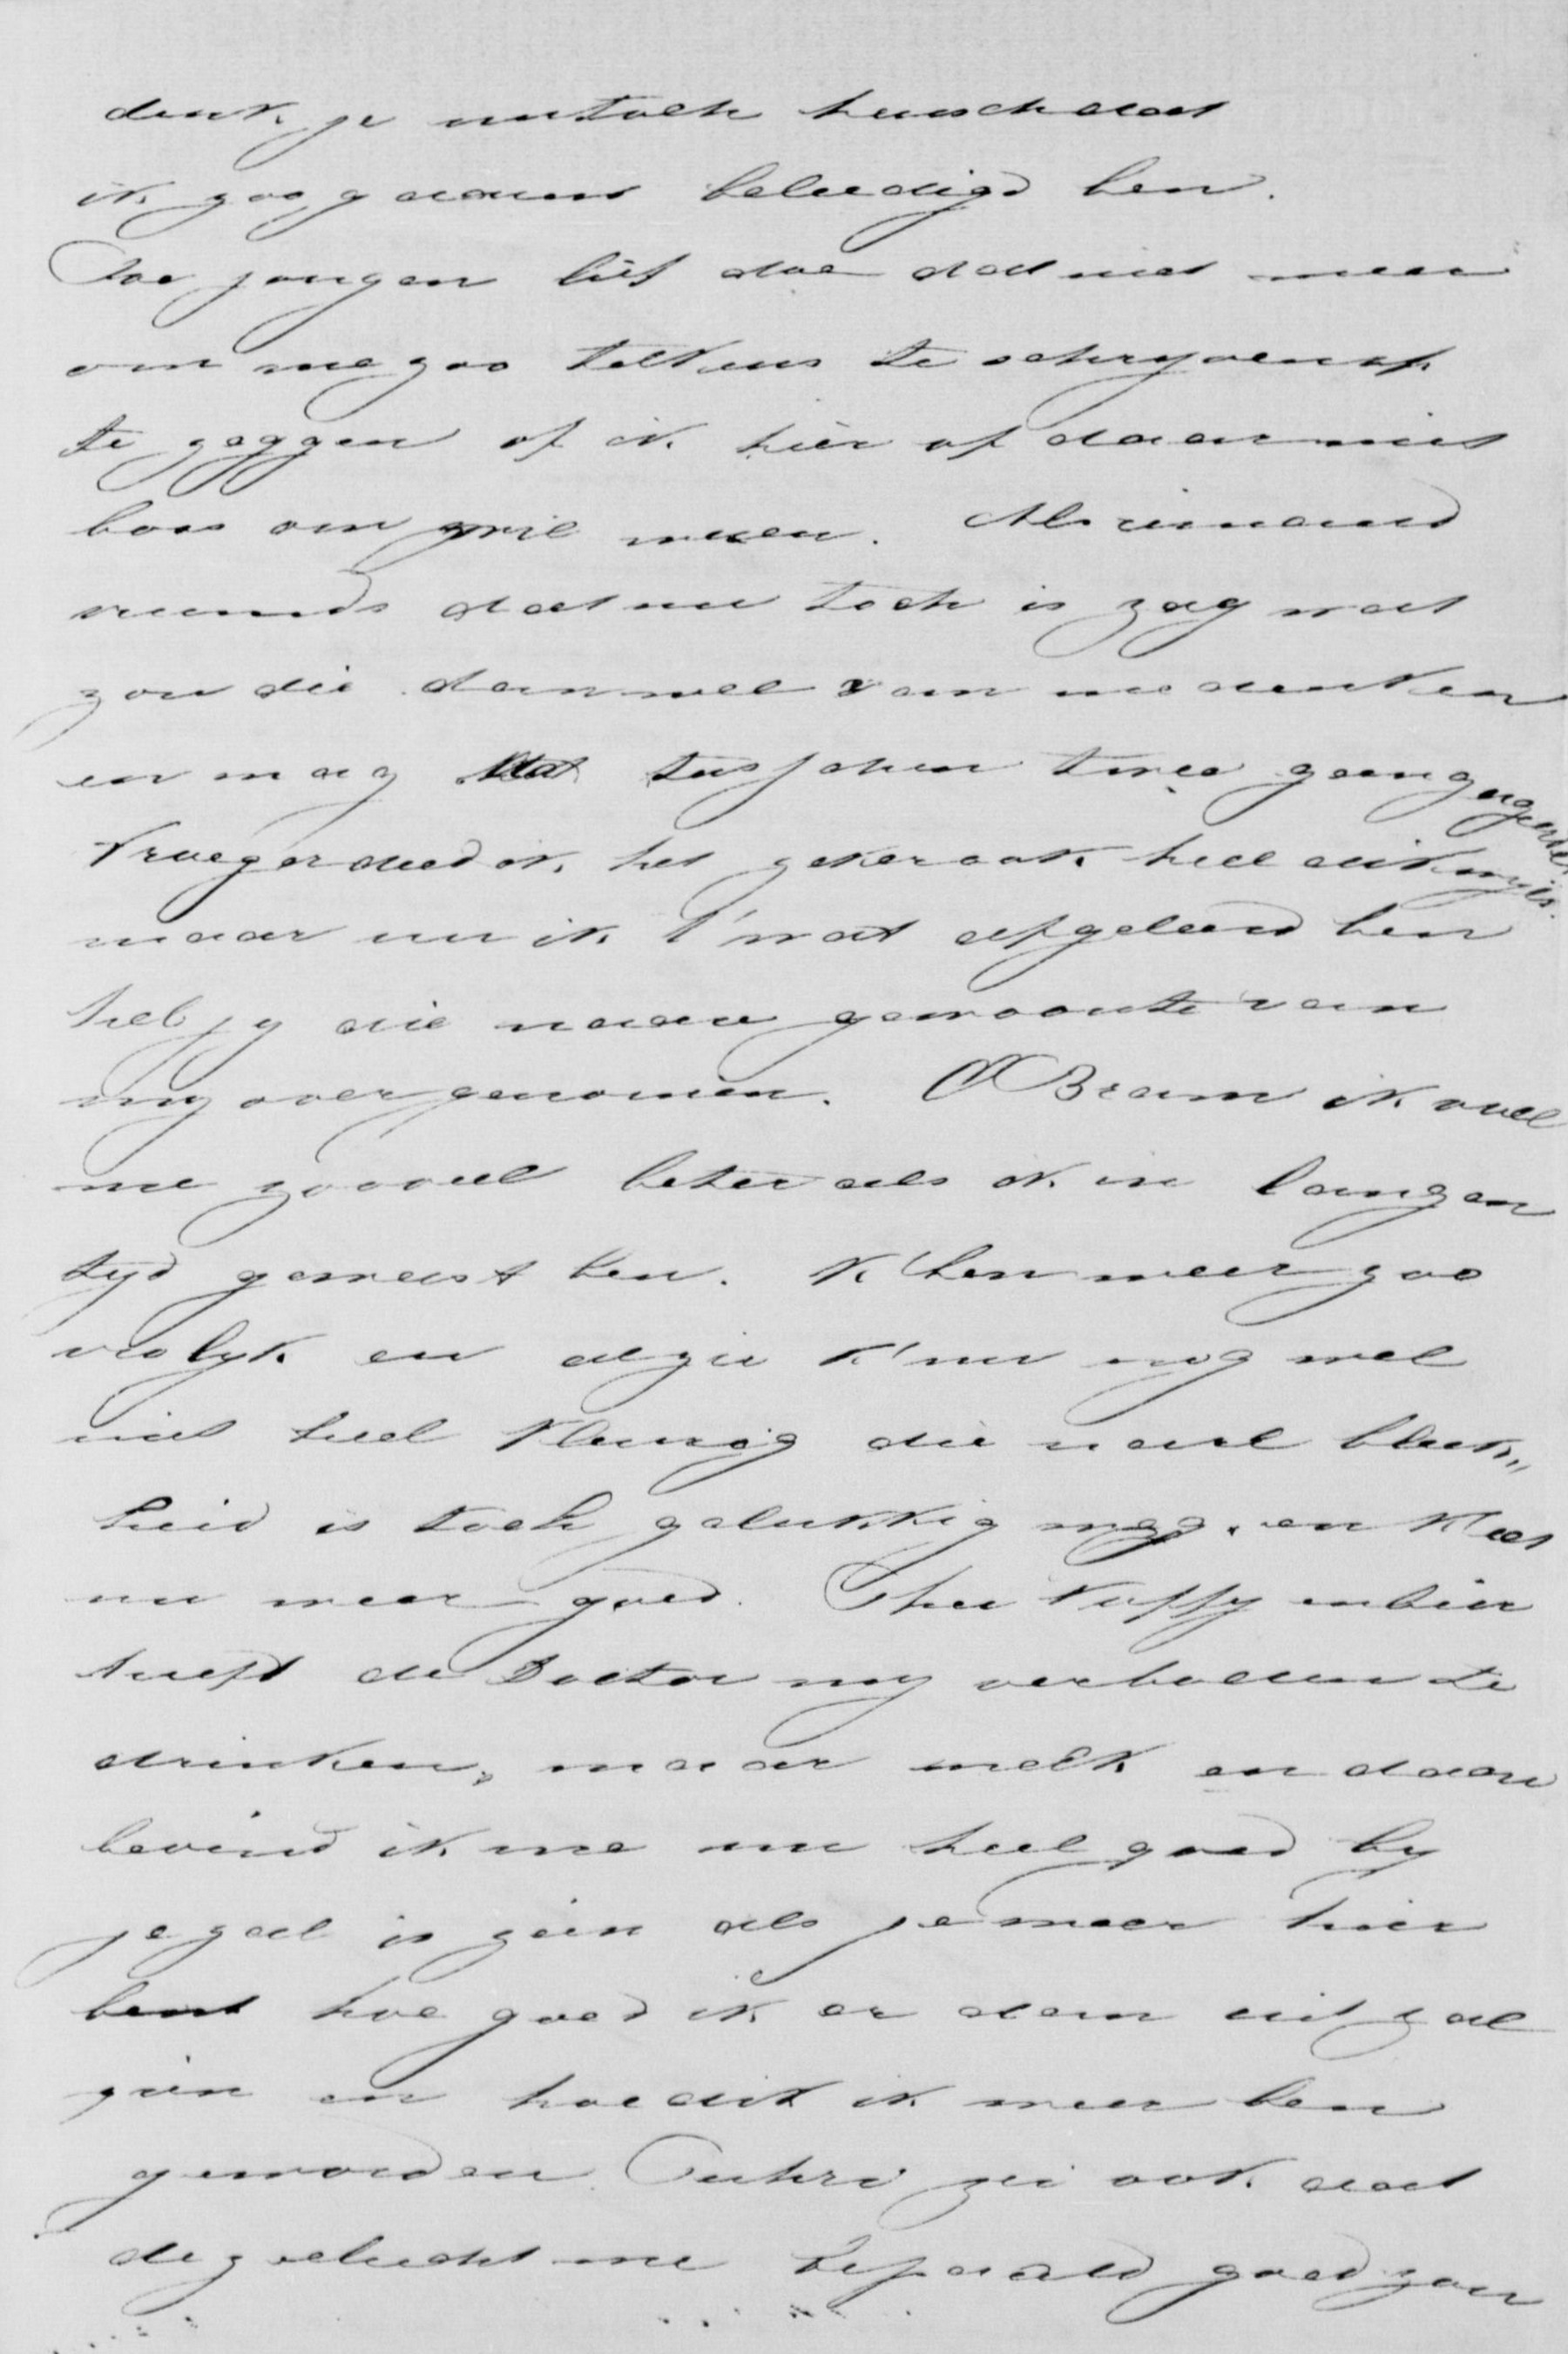 denk je nu toch heusch dat
ik zoo gauw beleedigd ben.
Toe jongen lief doe dat niet meer
om me zoo telkens te schryven of
te zeggen of ik hier of daar niet
boos om wil wezen. Als iemand
vreemds dat nu toch is zag wat
zou die dan wel van me denken
en mag dat tusschen twee geengageerden
Vroeger deed ik het zeker ook heel dikwyls.
maar nu ik 't wat afgeleerd ben
heb jy die nare gewoonte van
my overgenomen. O Bram ik voel
me zooveel beter als ik in langen
tyd geweest ben. K'ben weer zoo
vrolyk en al zie k'nu nog wel
niet heel kleurig die nare bleek„
heid is toch gelukkig weg. en k'eet
nu weer goed. Thee koffy en bier
heeft de Doctor my verboden te
drinken, maar melk en daar
bevind ik me nu heel goed by
je zal is zien als je weer hier
bent hoe goed ik er dan uit zal
zien en hoe dik ik weer ben
geworden. zei ook dat
de zeelucht me bepaald goed zou